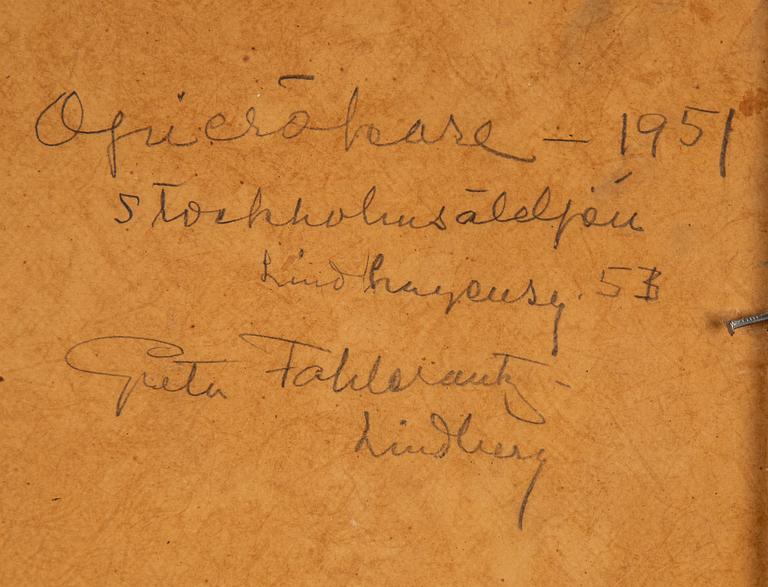 Opierökare – 1951
Stockholmsäldjón
Lindhagensg. 53
Greta Fahlcrantz-
Lindberg